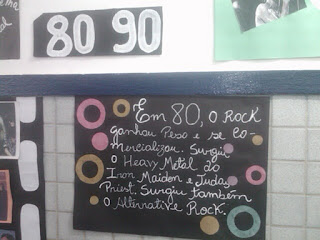 80 90
Em 80, o Rock
ganhou Peso e se Co-
mercializou. Surgiu
o Heavy Metal do
Iron Maiden e Judas
Priest. Surgiu também
o Alternative Rock.